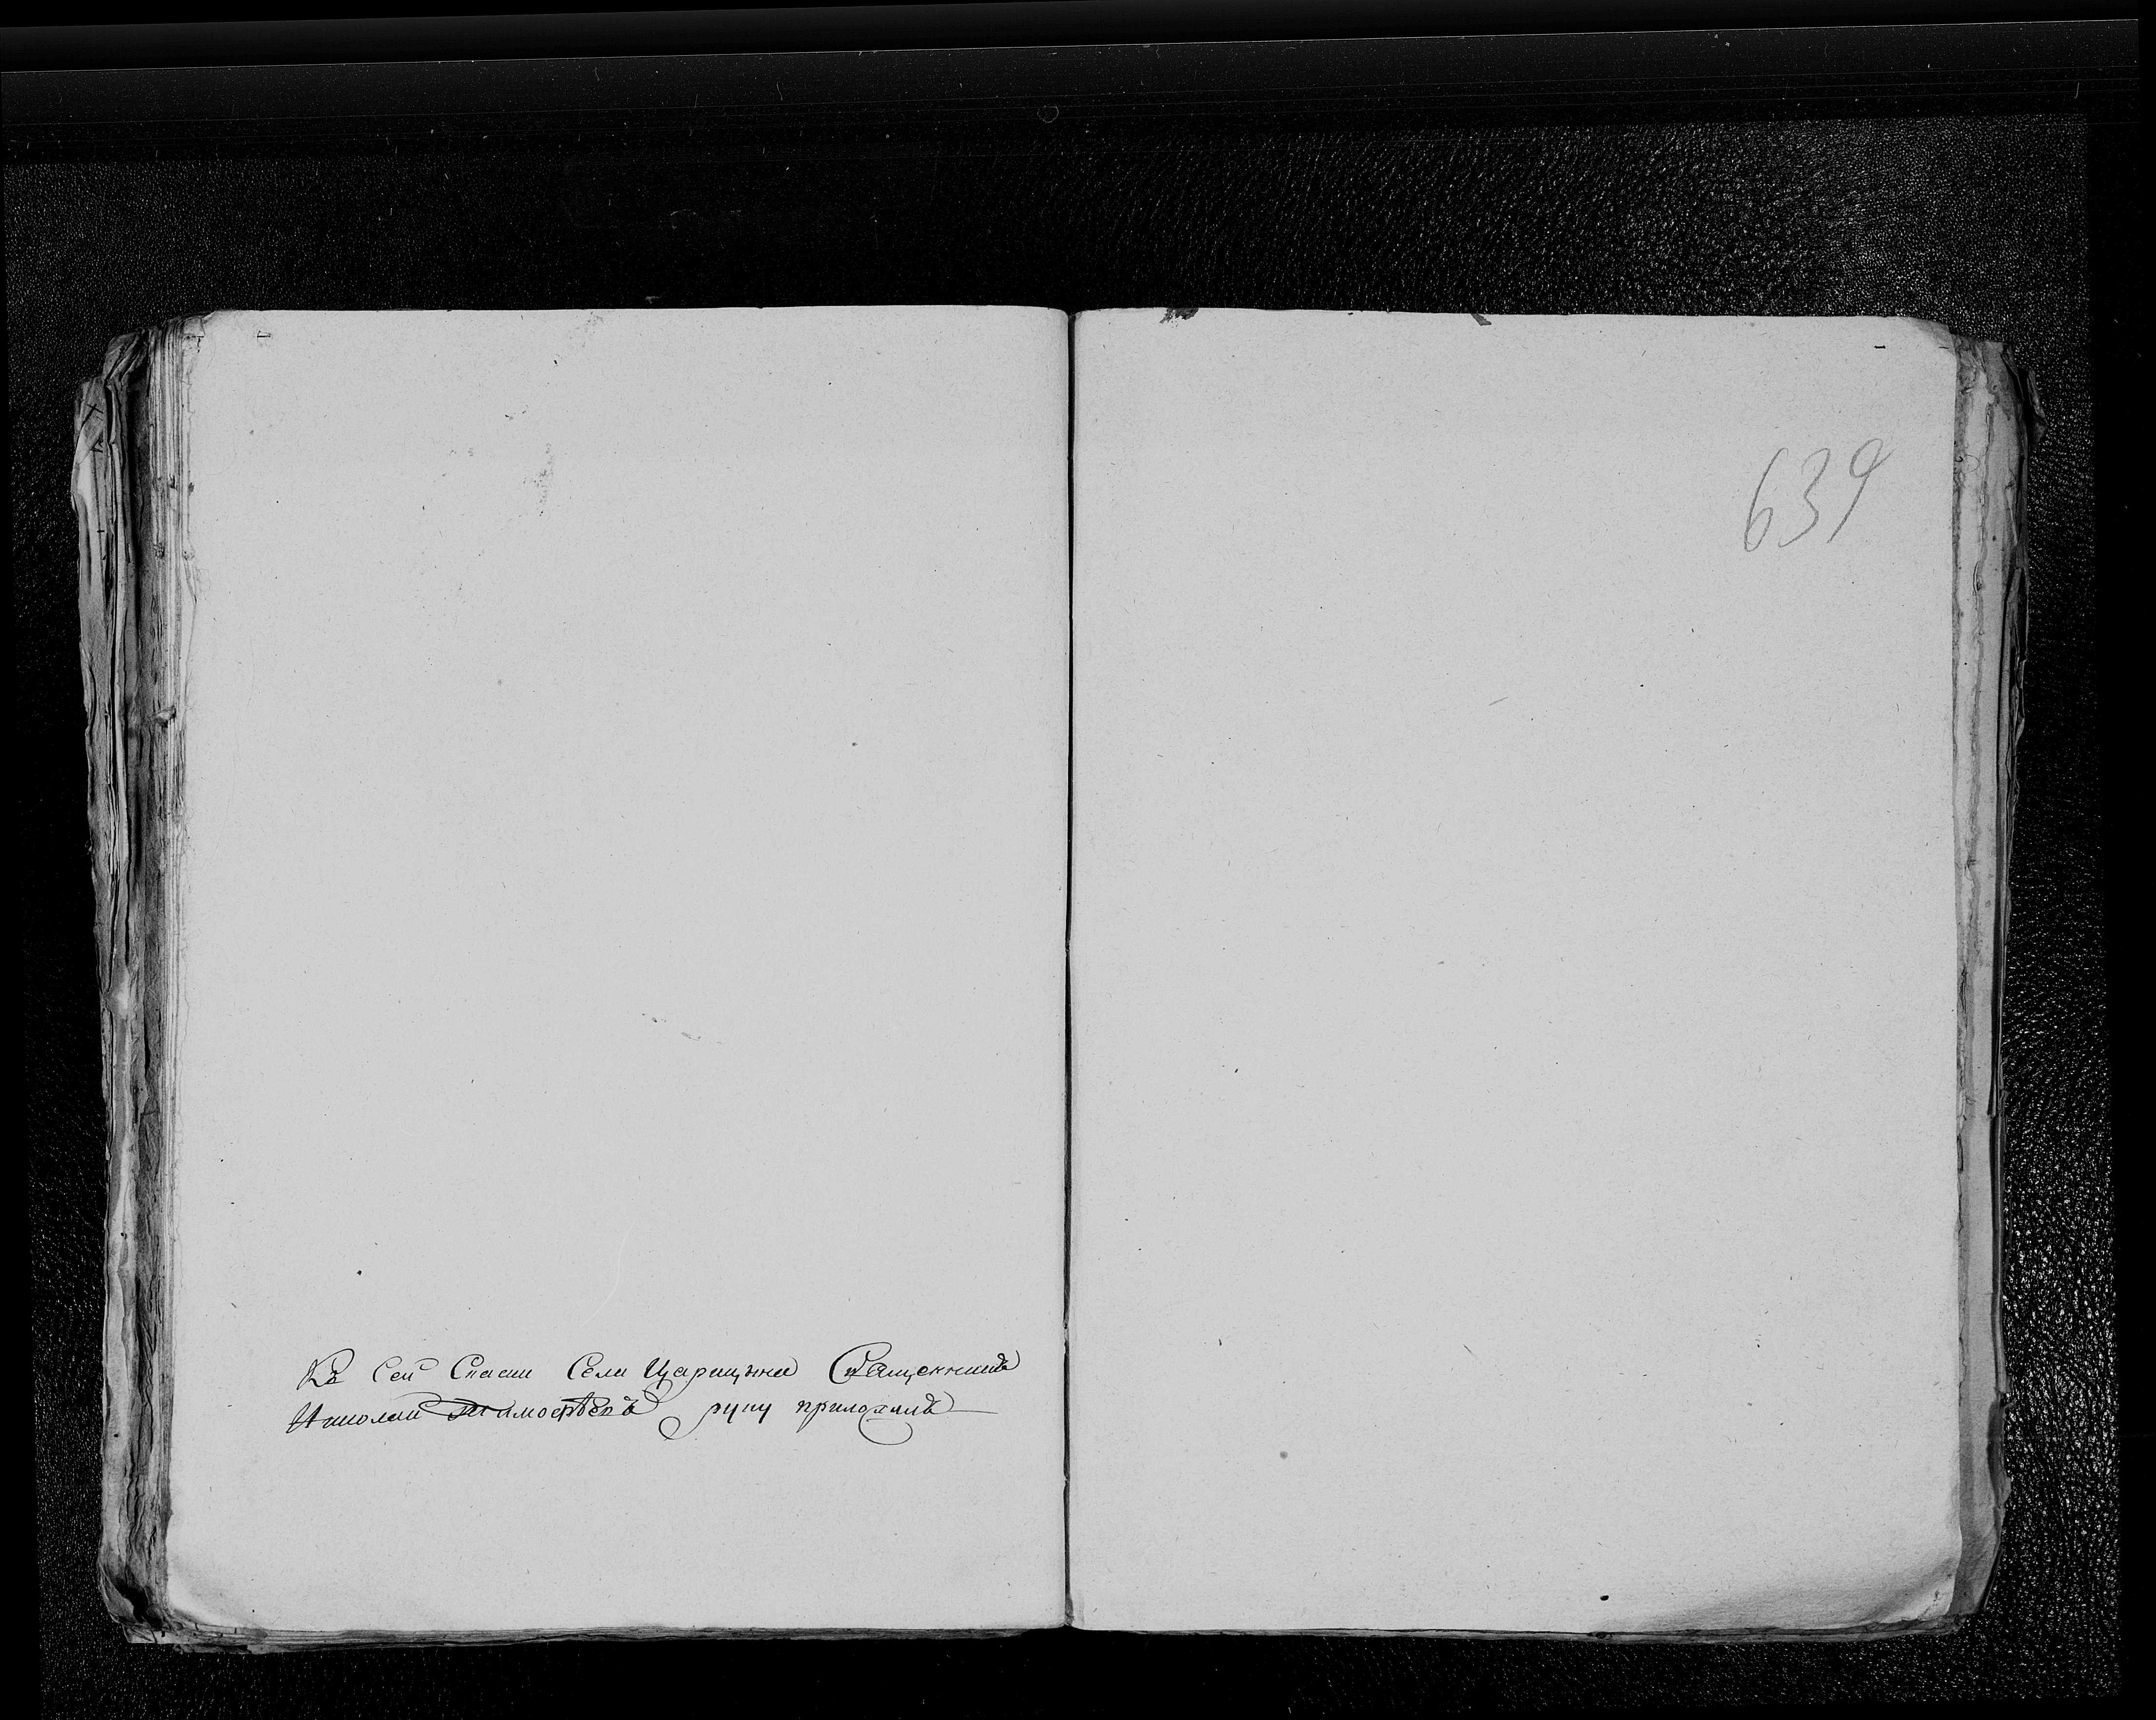 Къ сей Скаски Села Царицына Священникъ
Николай Тимофѣевъ руку приложилъ
639